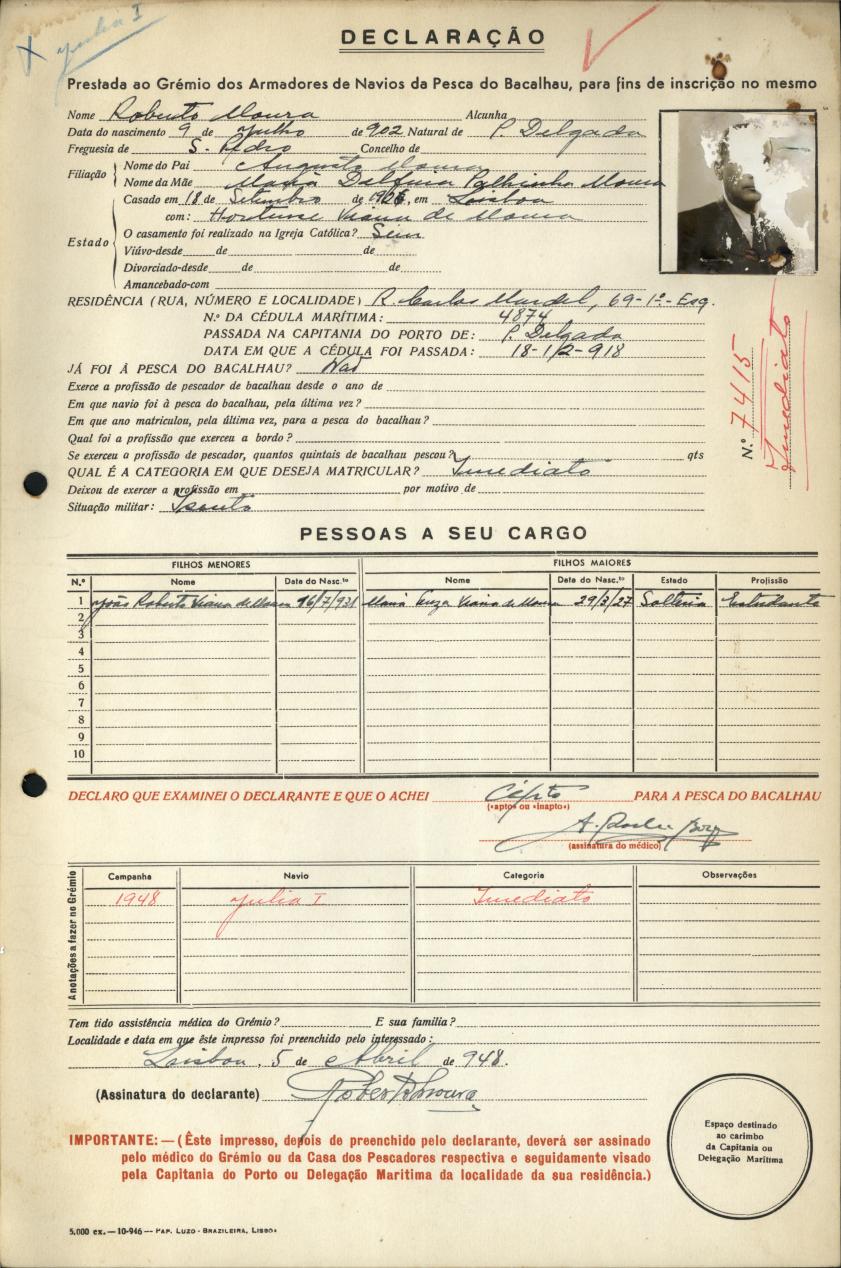 X Julia I
DECLARAÇÃO
Prestada ao Grémio dos Armadores de Navios da Pesca do Bacalhau, para fins de inscrição no mesmo
Nome Roberto Moura Alcunha
Data do nascimento 9 de Julho de 902 Natural de P. Delgada
Freguesia de S. Pedro Concelho de
Filiação
Nome do Pai Augusto Moura
Nome da Mãe Maria Delfina Palhinha Moura
Estado
Casado em 18 de Setembro de 1926, em Lisboa
com: Hortense Viana de Moura
O casamento foi realizado na Igreja Católica? Sim
Viúvo-desde de de
Divorciado-desde de de
Amancebado-com
RESIDÊNCIA (RUA, NÚMERO E LOCALIDADE) R. Carlos Mardel, 69-1º-Esq.
N.º DA CÉDULA MARÍTIMA: 4874
PASSADA NA CAPITANIA DO PORTO DE: P. Delgada
DATA EM QUE A CÉDULA FOI PASSADA: 18-12-918
JÁ FOI À PESCA DO BACALHAU? Não
Exerce a profissão de pescador de bacalhau desde o ano de
Em que navio foi à pesca do bacalhau, pela última vez?
Em que ano matriculou, pela última vez, para a pesca do bacalhau?
Qual foi a profissão que exerceu a bordo?
Se exerceu a profissão de pescador, quantos quintais de bacalhau pescou? qts
QUAL É A CATEGORIA EM QUE DESEJA MATRICULAR? Imediato
Deixou de exercer a profissão em por motivo de
Situação militar: Isento
N.º 7415
Imediato
PESSOAS A SEU CARGO
FILHOS MENORES FILHOS MAIORES
N.º Nome Data do Nasc.to Nome Data do Nasc.to Estado Profissão
1 João Roberto Viana de Moura 16/7/931 Maria Viana de Moura 29/3/27 Solteira Estudante
2
3
4
5
6
7
8
9
10
DECLARO QUE EXAMINEI O DECLARANTE E QUE O ACHEI PARA A PESCA DO BACALHAU
(«apto» ou «inapto»)
(assinatura do médico)
Anotações a fazer no Grémio
Campanha Navio Categoria Observações
1948 Julia I Imediato
Tem tido assistência médica do Grémio? E sua família?
Localidade e data em que êste impresso foi preenchido pelo interessado:
Lisboa, 5 de Abril de 948.
(Assinatura do declarante) Roberto Moura
IMPORTANTE: — (Êste impresso, depois de preenchido pelo declarante, deverá ser assinado
pelo médico do Grémio ou da Casa dos Pescadores respectiva e seguidamente visado
pela Capitania do Porto ou Delegação Maritima da localidade da sua residência.)
Espaço destinado
ao carimbo
da Capitania ou
Delegação Marítima
5.000 ex. — 10-946 — PAP. LUZO-BRAZILEIRA, LISBOA